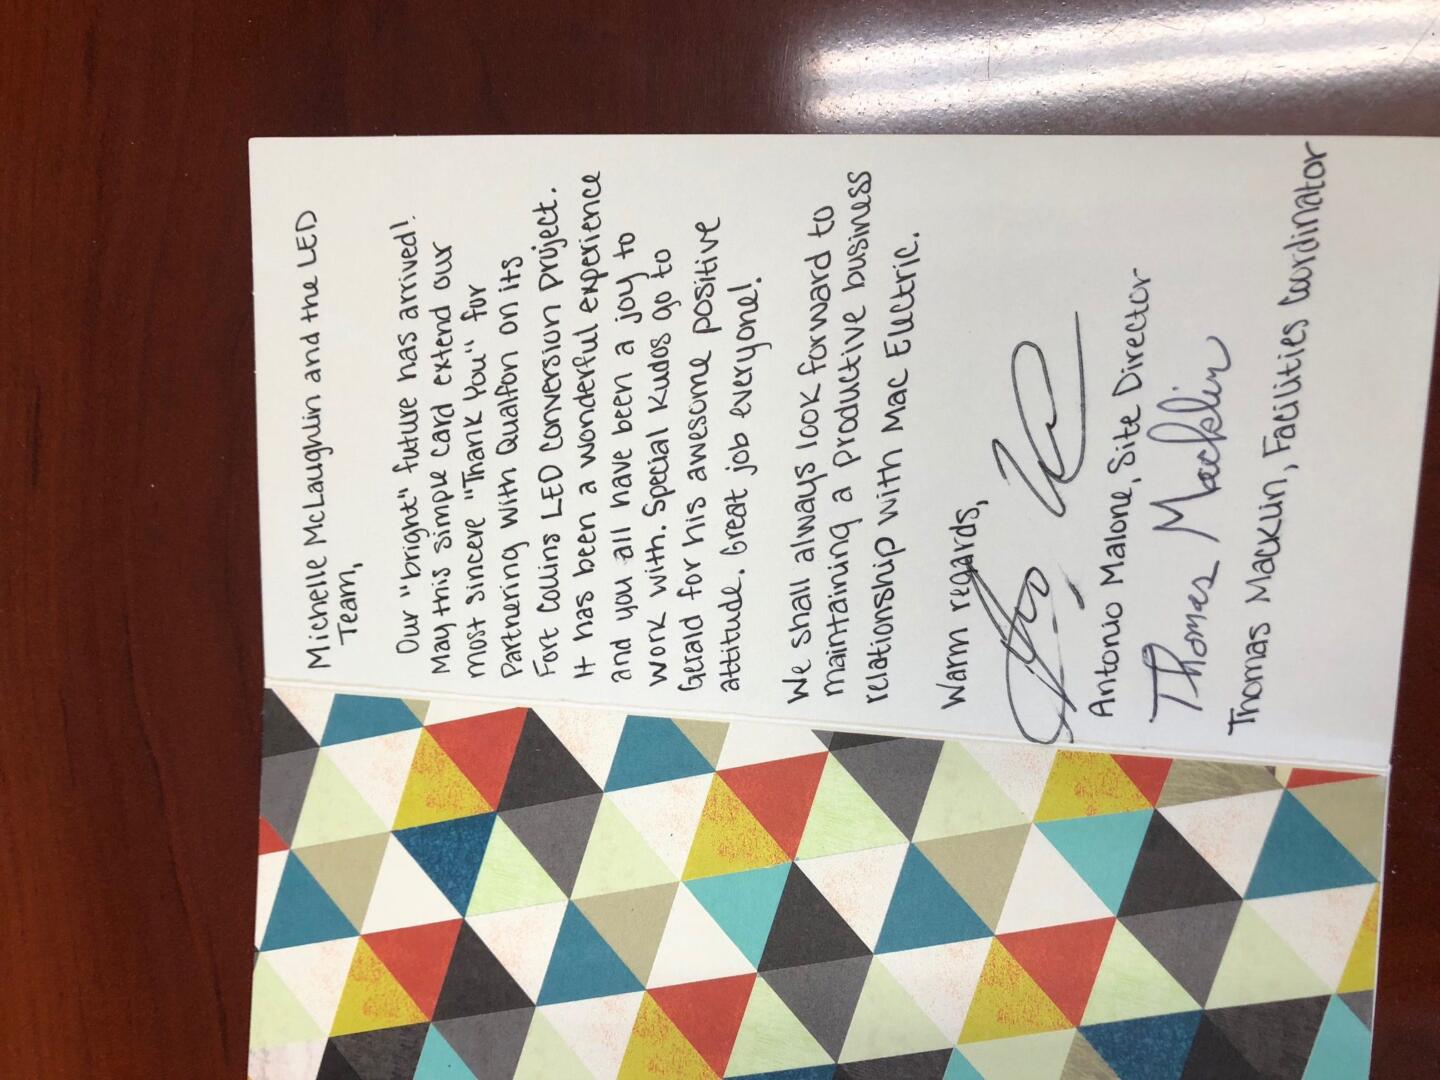 Michelle McLaughlin and the LED
Team,
Our "bright" future has arrived!
May this simple card extend our
most sincere "Thank You" for
Partnering with Qualfon on its
Fort Collins LED Conversion project.
It has been a wonderful experience
and you all have been a joy to
work with. Special Kudos go to
Gerald for his awesome positive
attitude. Great job everyone!
We shall always look forward to
maintaining a productive business
relationship with Mac Electric.
Warm regards,
Antonio Malone, Site Director
Thomas Macklin
Thomas Macklin, Facilities Curdinator